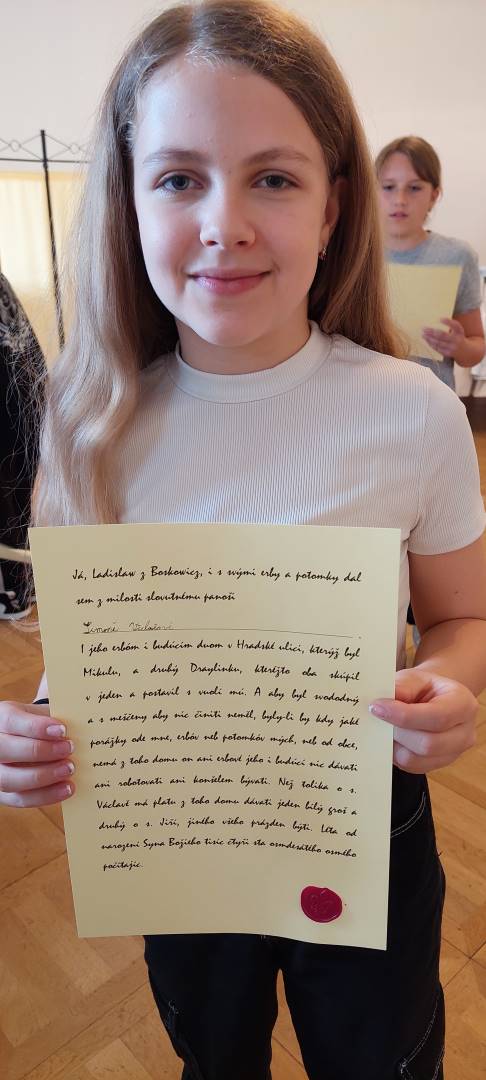 Já, Ladislaw z Boskowicz, i s svými erby a potomky dal
sem z milosti slovutnému panoši
Simoně
I jeho erbóm i budúcim duom v Hradské ulici, kterýž byl
Mikulu, a druhý Draylinku, kterézto oba skúpil
v jeden a postavil s vuolí mú. A aby byl svododný
a s meščěny aby nic činiti neměl, byly-li by kdy jaké
porážky ode mne, erbóv neb potomkóv mých, neb od obce,
nemá z toho domu on ani erbové jeho i budúcí nic dávati
ani robotovati ani konšelem bývati. Než tolika o s.
Václavě má platu z toho domu dávati jeden bílý groš a
druhý o s. Jiří, jiného všeho prázden býti. Léta od
narození Syna Božieho tisíc čtyři sta osmdesátého osmého
počítajíc.